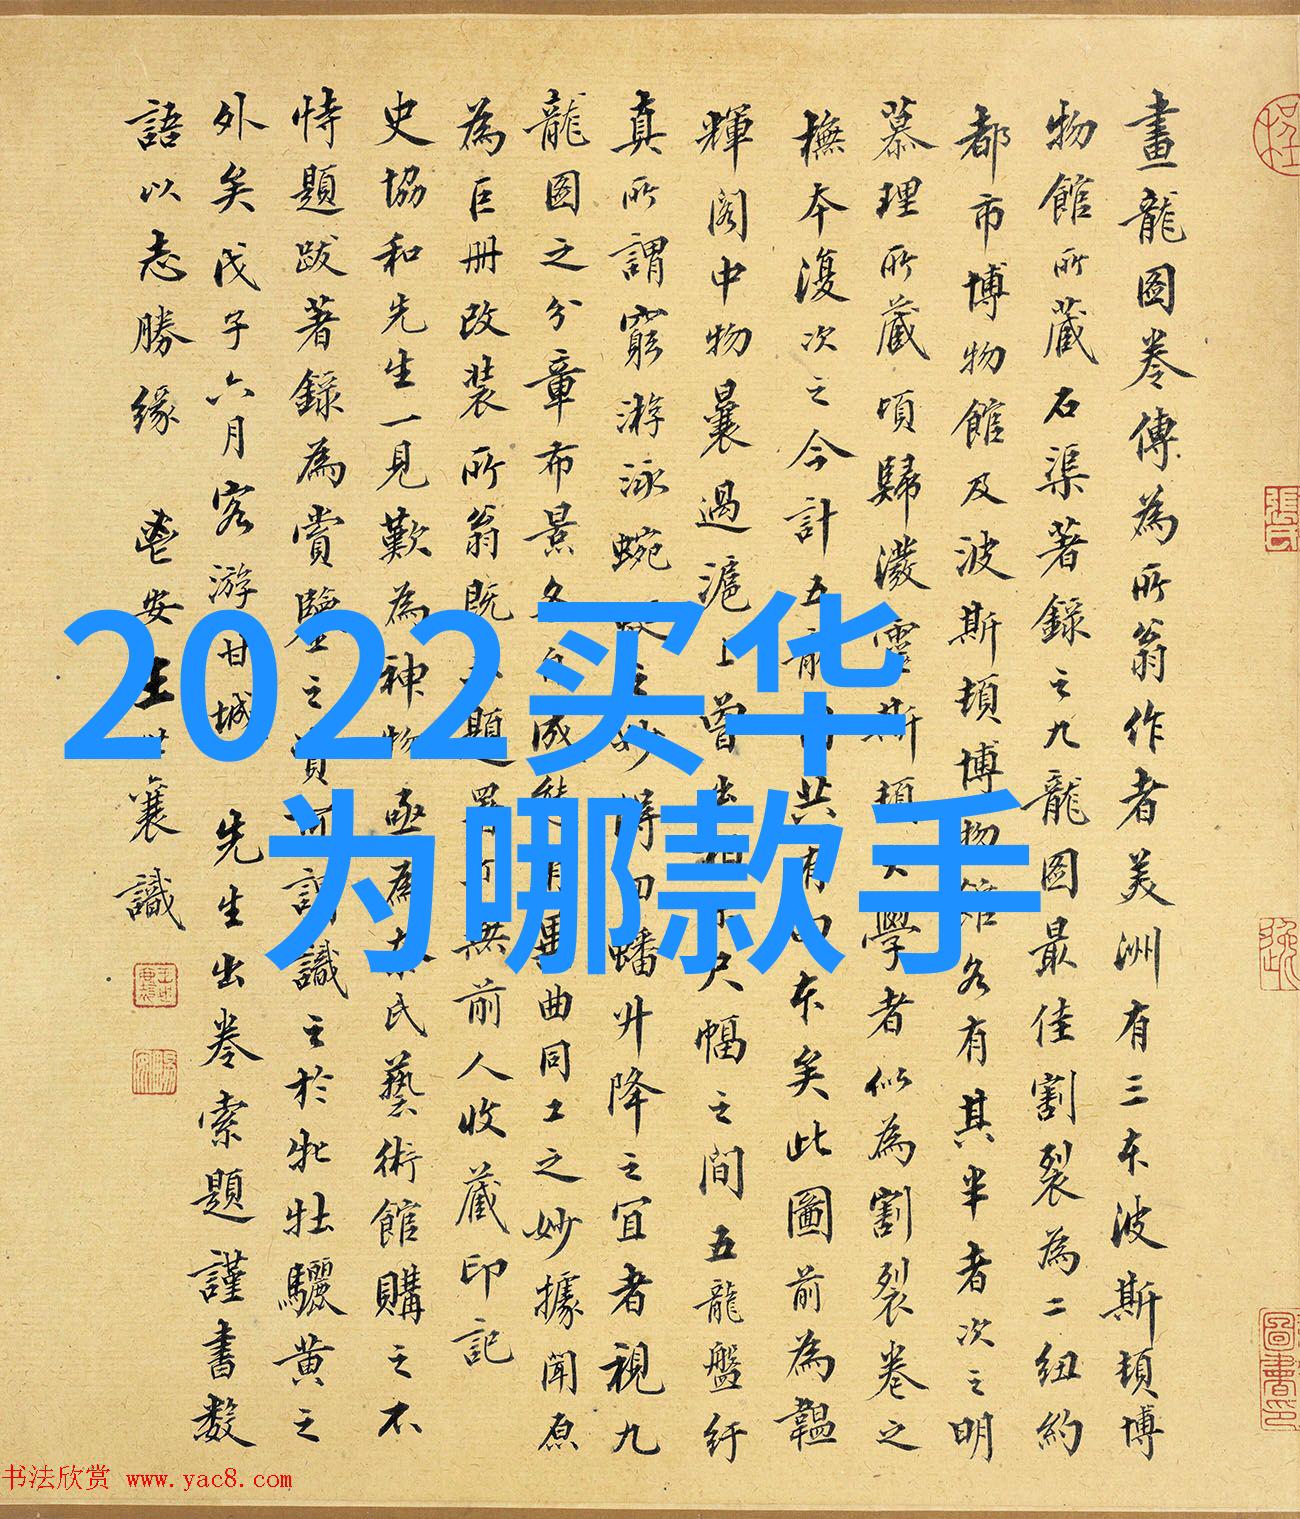 畫龍圖卷傳為所翁作者美洲有三本波斯頓博
物館所藏石渠著錄之九龍圖最佳割裂為二紐約
都市博物館及波斯頓博物館各有其半者次之明
慕理所藏頃歸瀀靈斯頓大學者似為割裂卷之
橅本復次之今計五龍圖共有四本矣此圖前為韞
輝閣中物曩過滬上曾出相示尺幅之間五龍盤紆
真所謂窮游泳蜿蜒之妙得回蟠升降之宜者視九
龍圖之分章布景各自成態有異曲同工之妙據聞原
為巨冊改裝所翁既無題署亦無前人收藏印記
史協和先生一見歎為神物亟為大東氏藝術館購之不
恃題跋著錄為賞鑒之資可謂識之於牝牡驪黃之
外矣戊子六月客游甘城 先生出卷索題謹書數
語以志勝緣 鬯安王世襄識
2022买华
为哪款手
书法欣赏 www.yac8.com